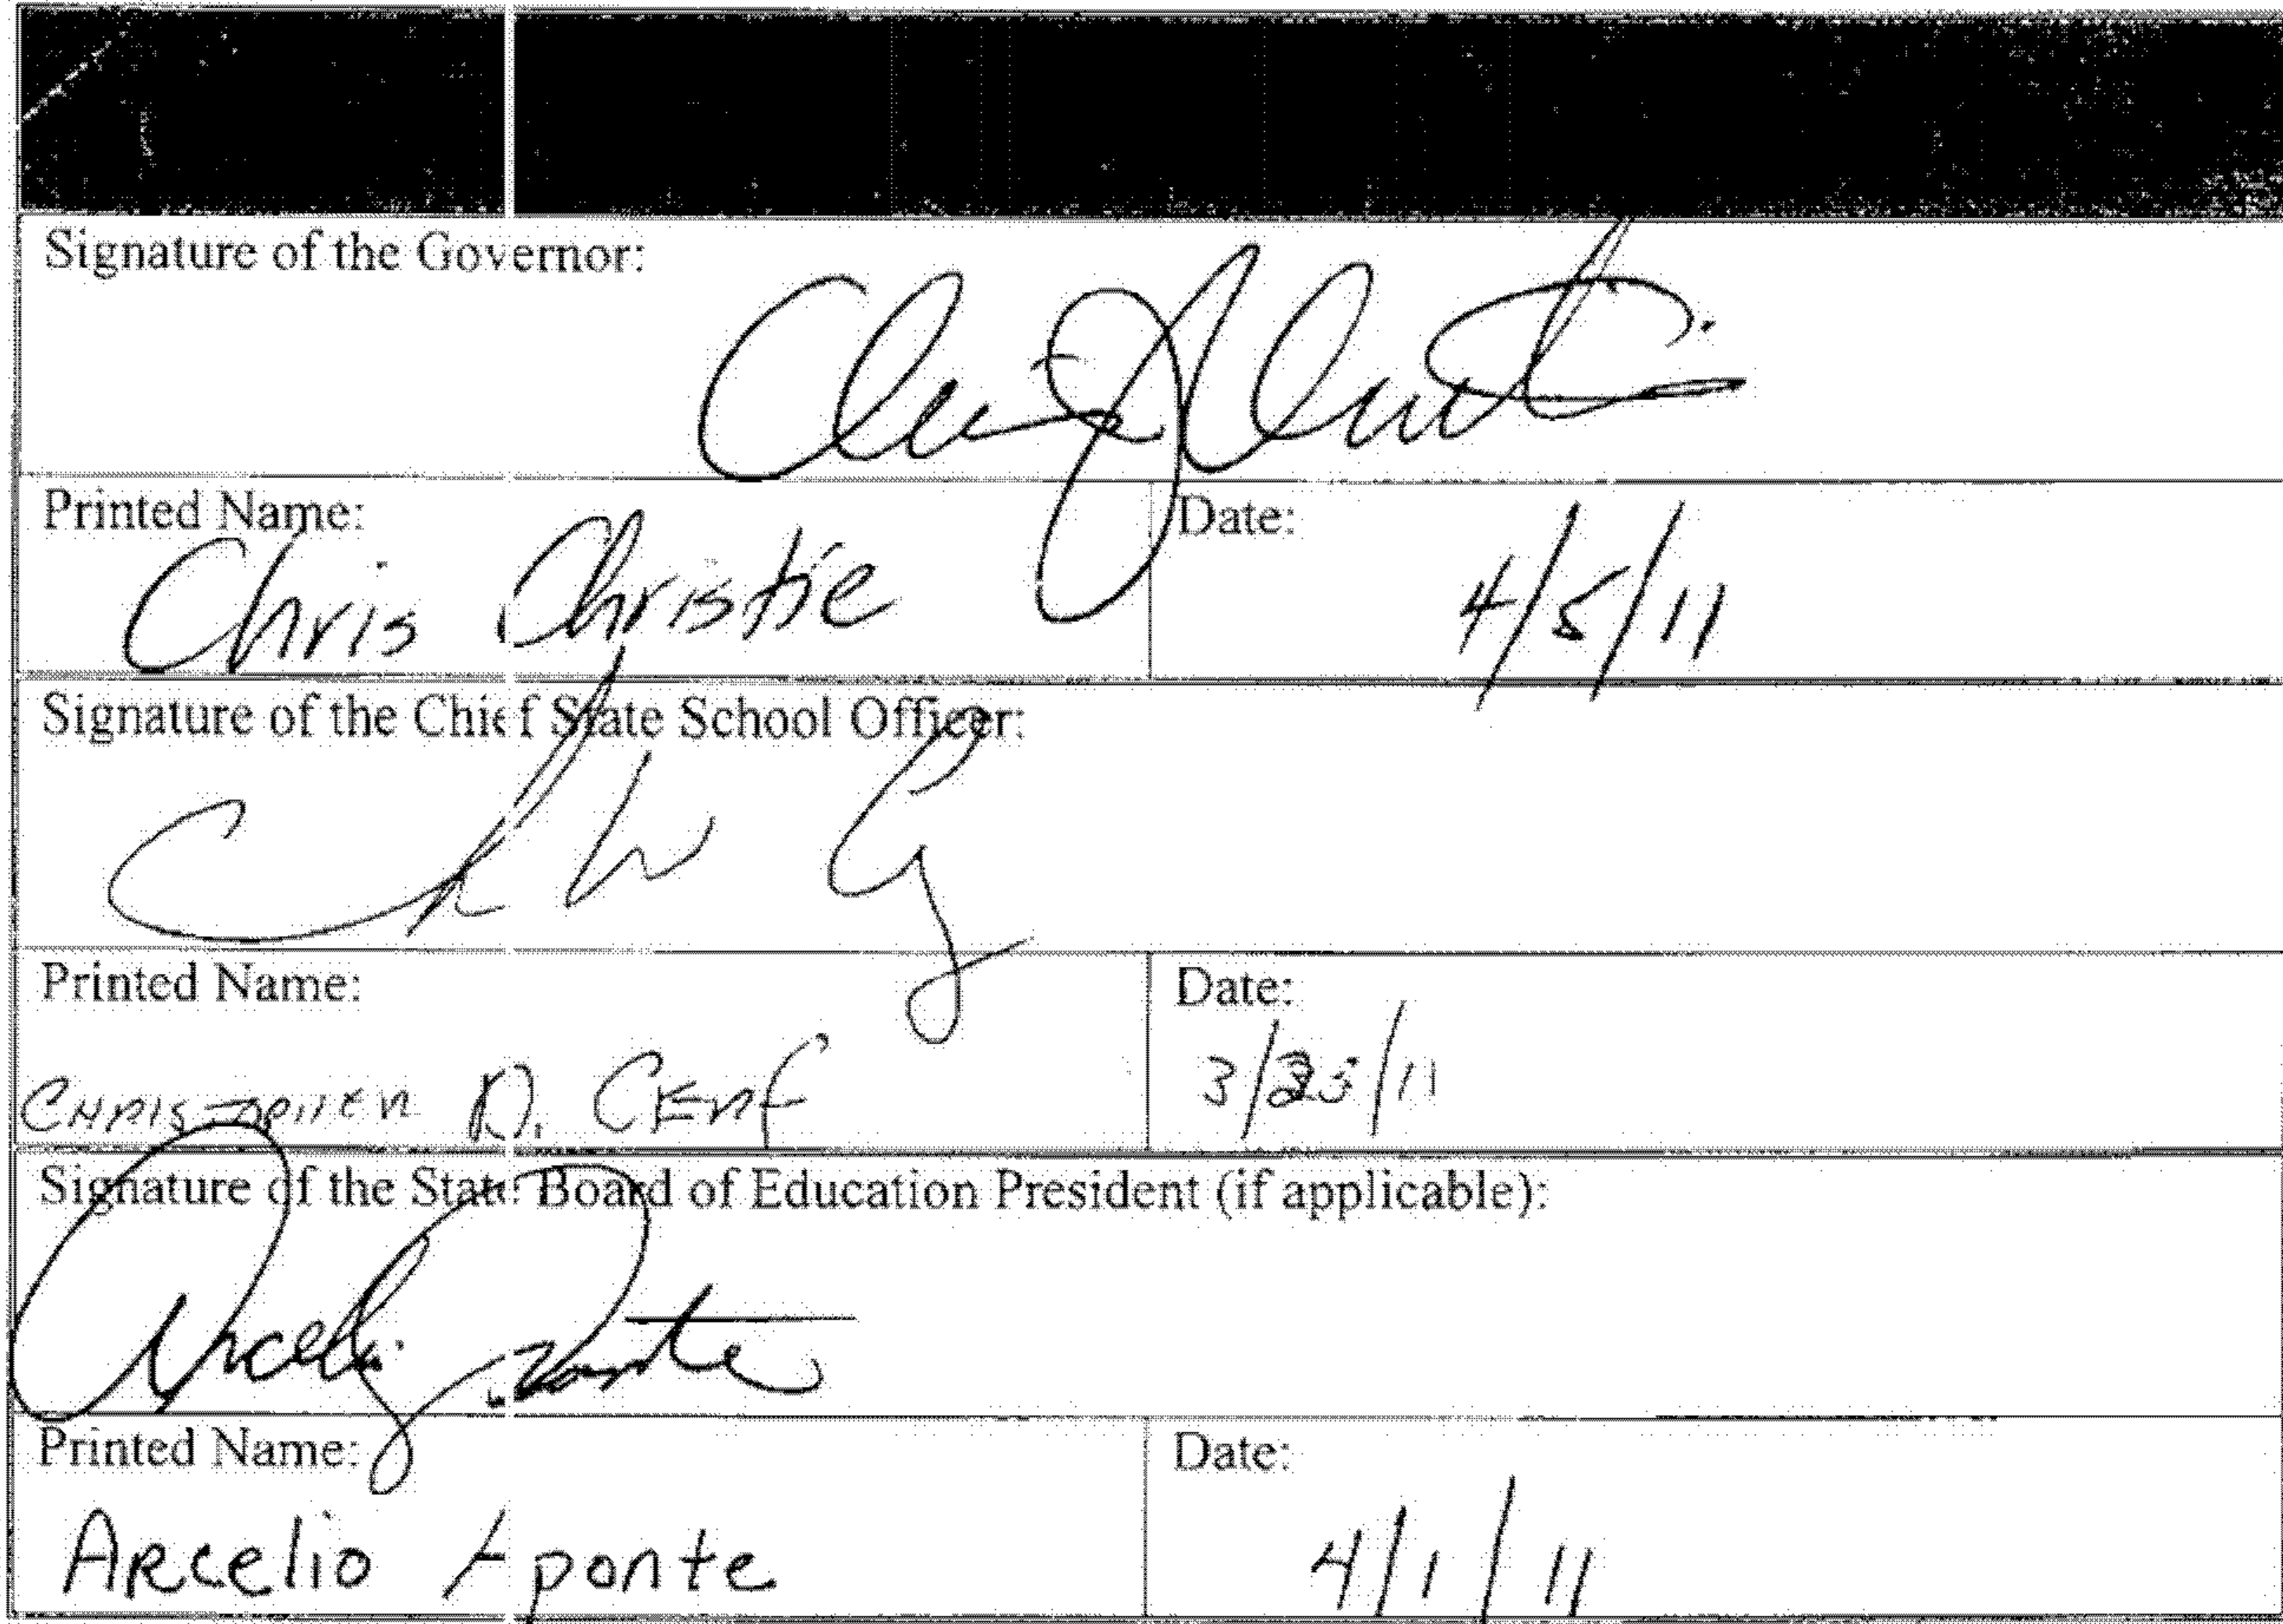 Signature of the Governor:
Printed Name:
Date:
Chris Christie
4/5/11
Signature of the Chief State School Officer:
Printed Name:
Date:
Christopher D. Cerf
3/23/11
Signature of the State Board of Education President (if applicable):
Arcelio Aponte
Printed Name:
Date:
Arcelio Aponte
4/1/11